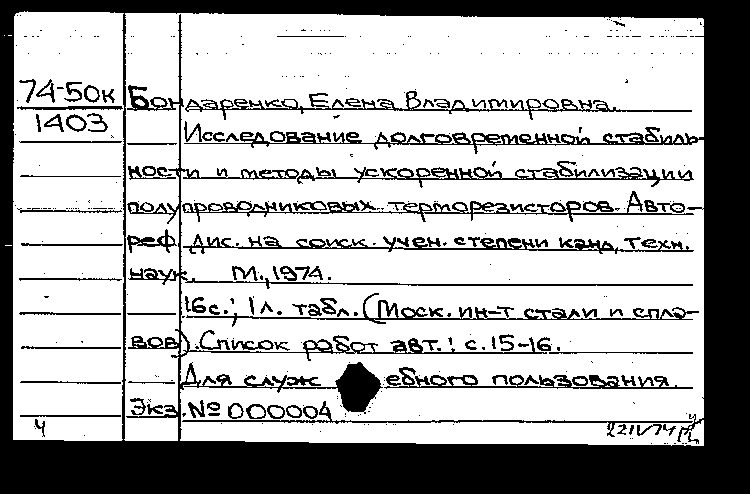 74-50к Бондаренко, Елена Владимировна.
1403 Исследование долговременной стабиль-
ности и методы ускоренной стабилизации
полупроводниковых терморезисторов. Авто-
реф. дис. на соиск. учен. степени канд. техн.
наук. М., 1974.
16с.; 1л. табл. (Моск. ин-т стали и спла-
вов). Список работ авт.: с.15-16.
Для служебного пользования.
Экз. № 000004
ч